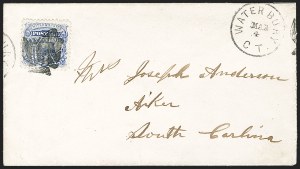 WATERBURY
MAR
4
CT.
Mrs Joseph Anderson
Aiker
South Carlina